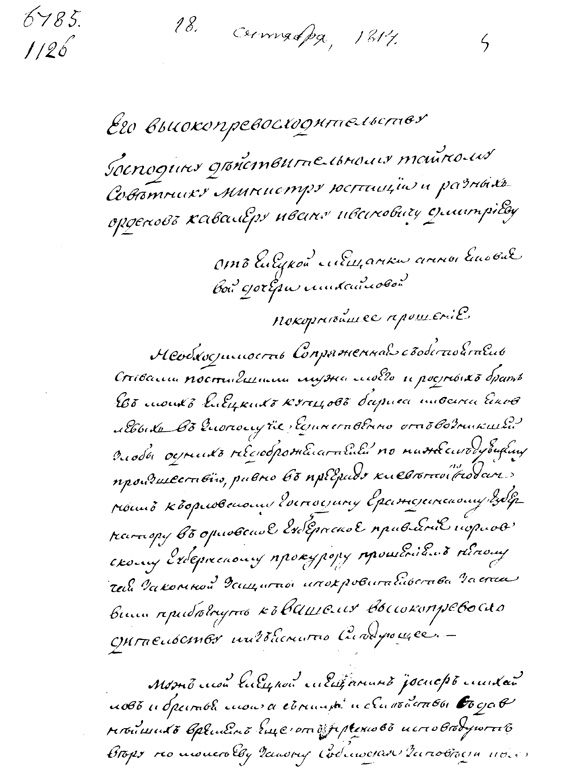 6785.
1126
18. сентября, 1814.
Его высокопревосходительству
Господину дѣйствительному тайному
Совѣтнику министру юстиціи и разныхъ
орденовъ кавалеру ивану ивановичу дмитріеву
отъ Елецкой мещанки анны яковле
вой дочери михайловой
покорнѣйшее прошеніе
Необходимость Сопряженная съобстоятель
ствами постигшими мужа моего и родныхъ брать
евъ моихъ Елецкихъ купцовъ бариса ивана яков
левыхъ въ злополучіе единственно отъ возникшей
злобы одних недоброжелателей по нижеслѣдующему
произшествію, равно въ клевѣтой подан
номъ къорловскому Господину Гражданскому губер
натору въ орловское губернское правленіе иорлов
скому губернскому прокурору прошеніемъ неполу
чая законной защиты ипокровительства заста
вили прибѣгнуть къ вашему высокопревосхо
дительству изъяснить следующее. —
Мужъ мой Елецкой мещанинъ іосифъ михай
ловъ и братья мои а сними и семѣйствы съдав
нѣйшихъ времѣнъ еще отъ предковъ исповѣдуютъ
вѣру по моисѣеву закону Соблюдая заповѣди